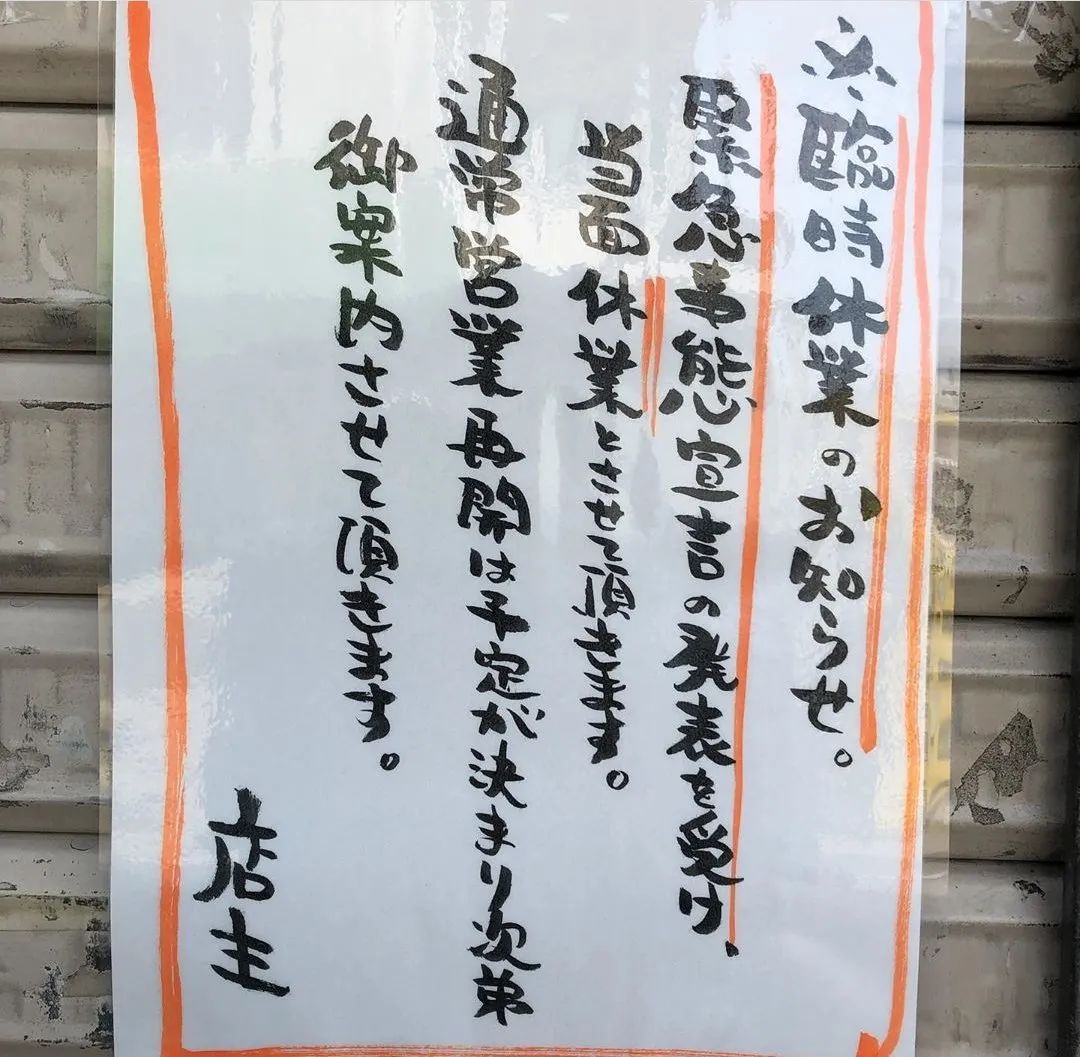 ※臨時休業のお知らせ。
緊急事態宣言の発表を受け、
当面休業とさせて頂きます。
通常営業再開は予定が決まり次第
御案内させて頂きます。
店主